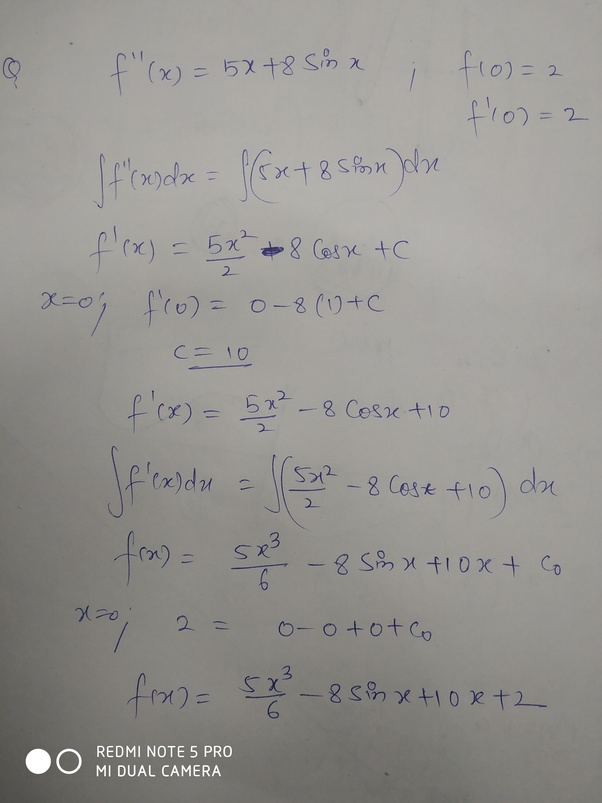 Q f''(x) = 5x+8 Sin x ; f(0) = 2
f'(0) = 2
∫f''(x)dx = ∫(5x+8 sinx)dx
f'(x) = 5x²/2 - 8 Cosx + C
x=0; f'(0) = 0-8(1)+C
C = 10
f'(x) = 5x²/2 - 8 Cosx +10
∫f'(x)dx = ∫(5x²/2 - 8 Cosx +10) dx
f(x) = 5x³/6 - 8 Sin x +10x + C₀
x=0; 2 = 0-0+0+C₀
f(x) = 5x³/6 - 8 sin x +10x +2
REDMI NOTE 5 PRO
MI DUAL CAMERA